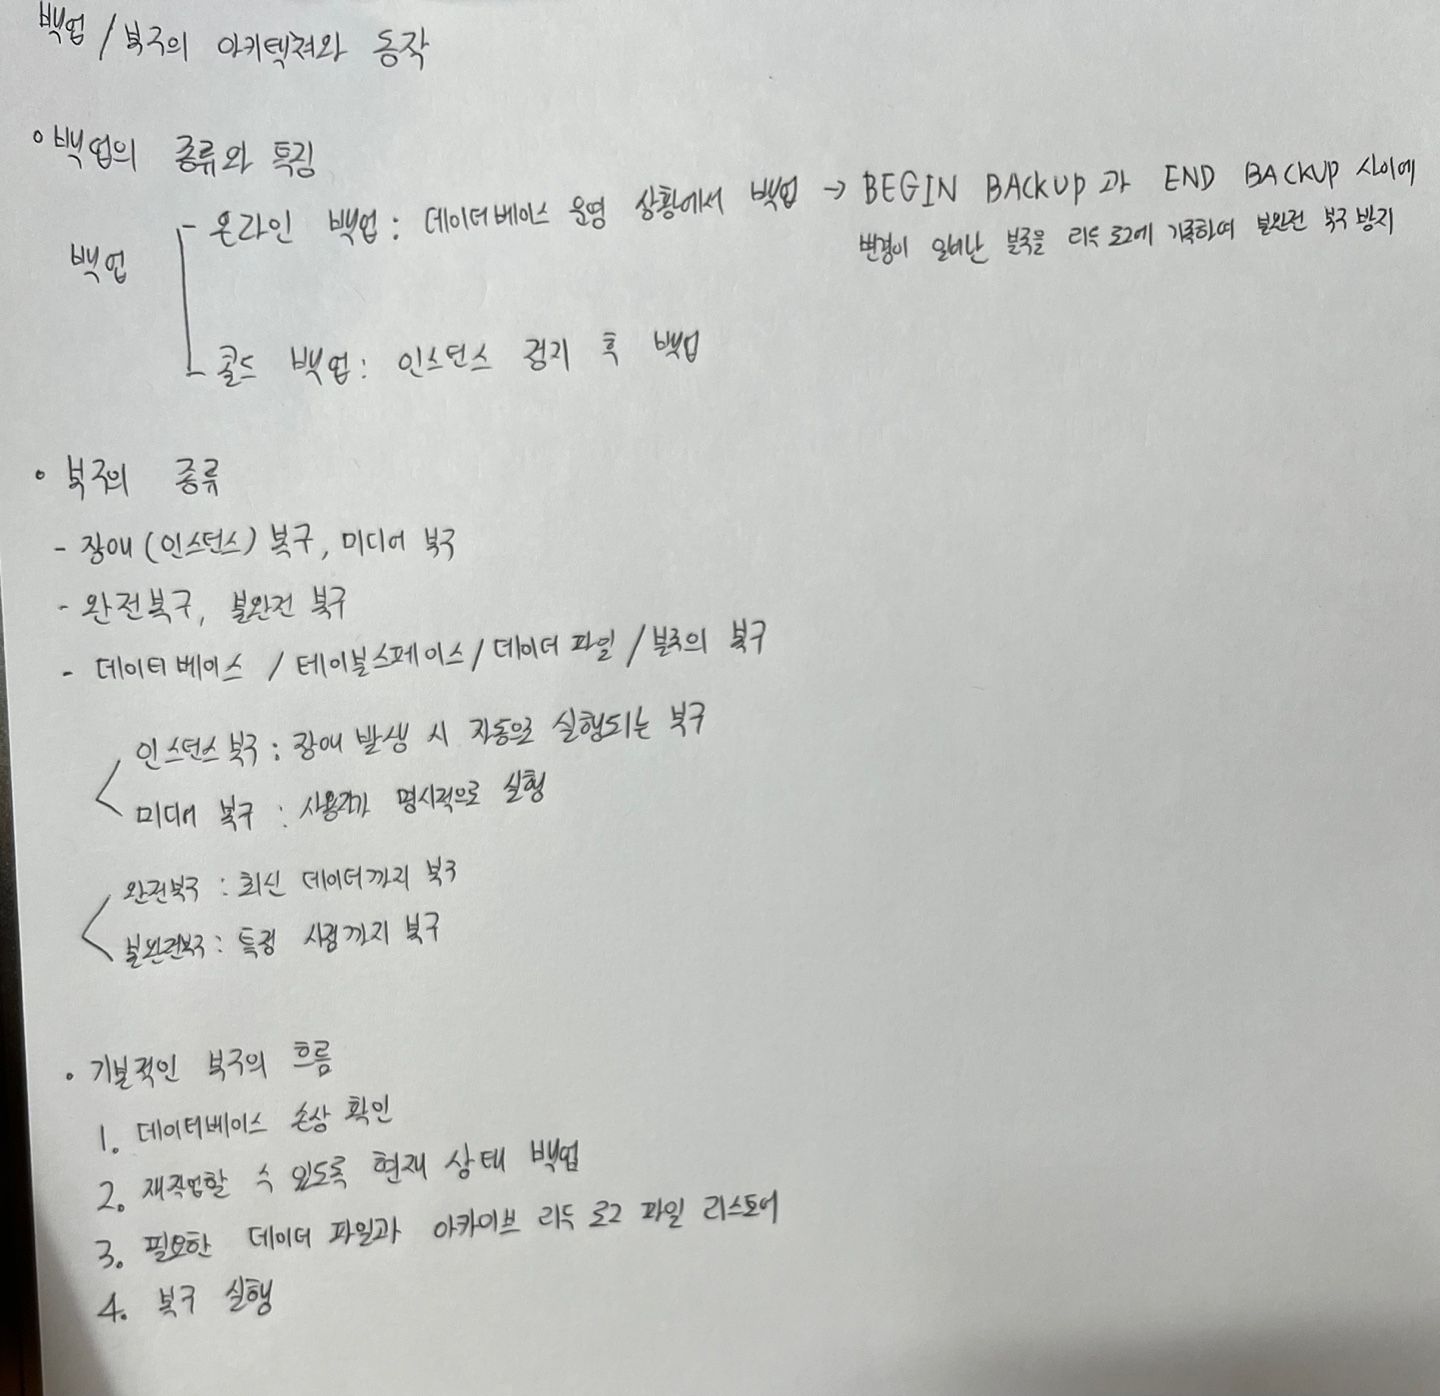 백업 / 복구의 아키텍쳐와 동작
백업의 종류와 특징
백업
- 온라인 백업 : 데이터베이스 운영 상황에서 백업 → BEGIN BACKUP 과 END BACKUP 사이에
변경이 일어난 블록을 리두 로그에 기록하여 불완전 복구 방지
- 콜드 백업 : 인스턴스 정지 후 백업
• 복구의 종류
- 장애 (인스턴스) 복구, 미디어 복구
- 완전복구, 불완전 복구
- 데이터베이스 / 테이블스페이스 / 데이터 파일 / 블록의 복구
인스턴스 복구 : 장애 발생 시 자동으로 실행되는 복구
미디어 복구 : 사용자가 명시적으로 실행
완전복구 : 최신 데이터까지 복구
불완전복구 : 특정 시점까지 복구
• 기본적인 복구의 흐름
1. 데이터베이스 손상 확인
2. 재작업할 수 있도록 현재 상태 백업
3. 필요한 데이터 파일과 아카이브 리두 로그 파일 리스토어
4. 복구 실행